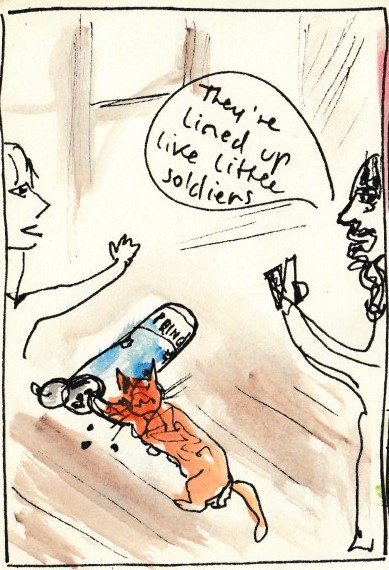 They're
lined up
like little
soldiers
PRING